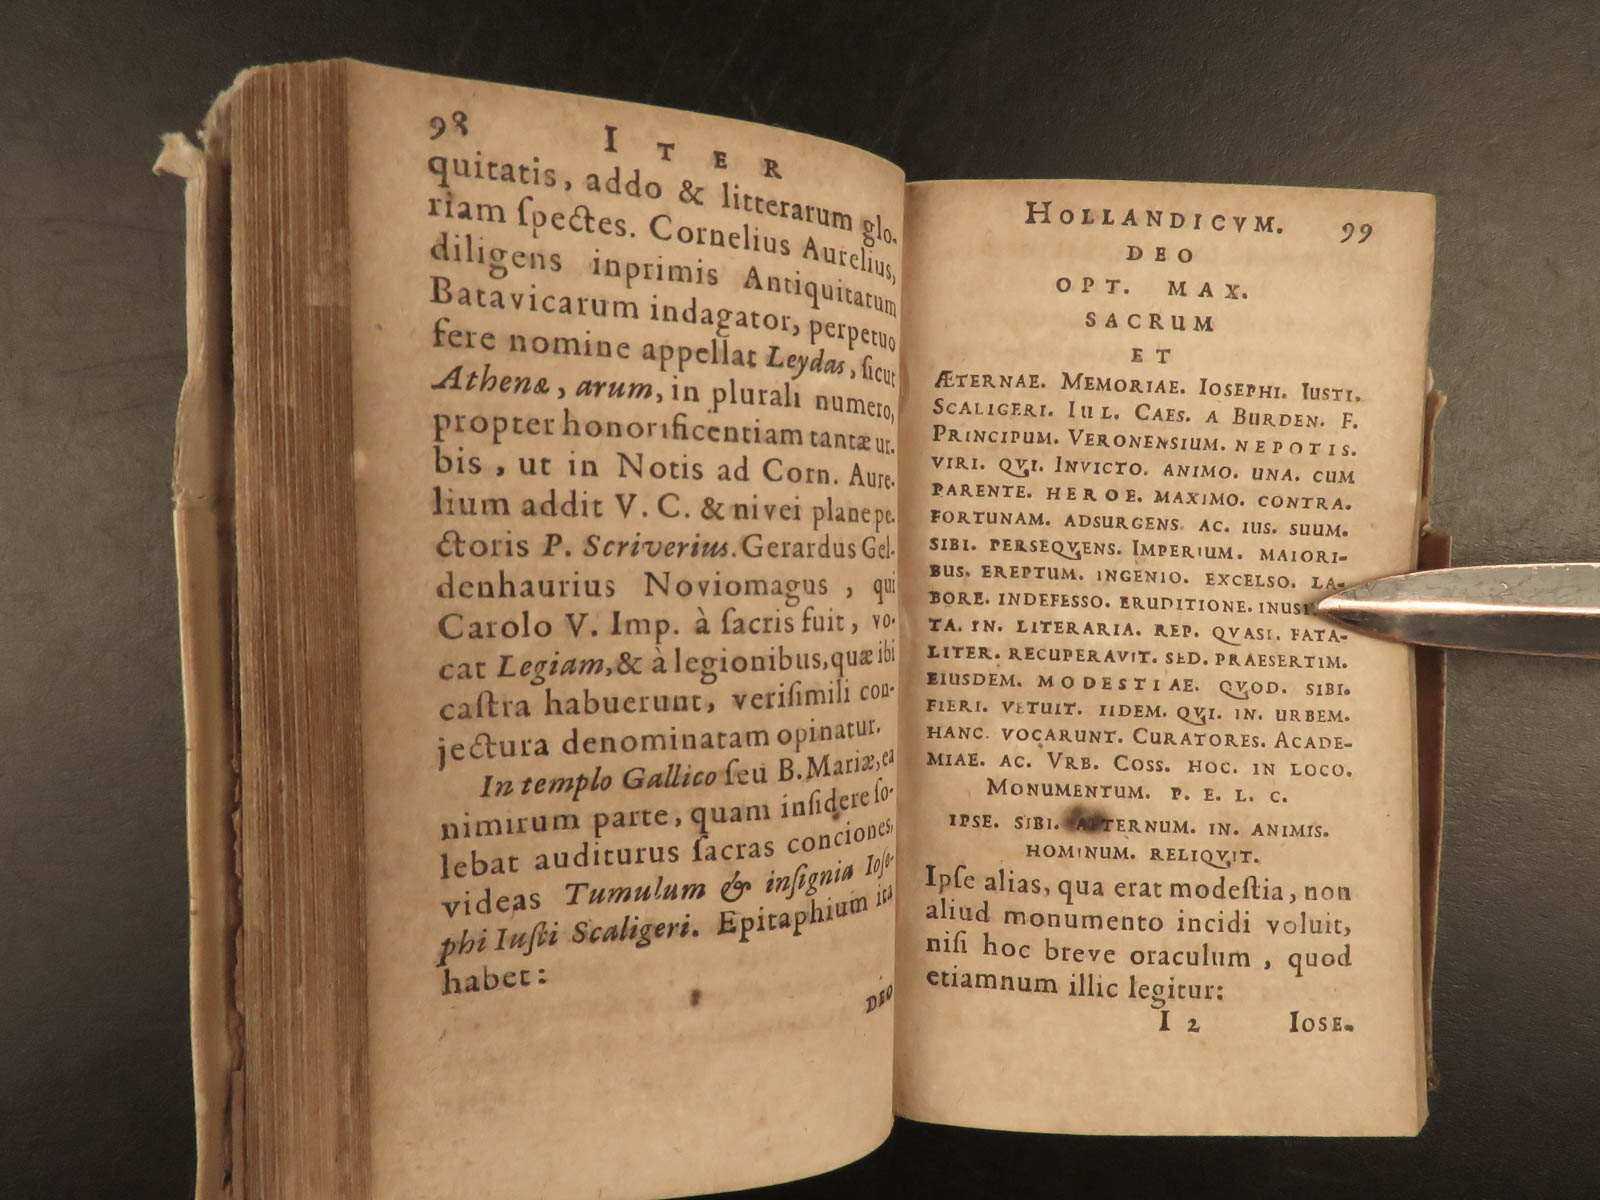 98 ITER
quitatis, addo & litterarum glo-
riam ſpectes. Cornelius Aurelius,
diligens inprimis Antiquitatum
Batavicarum indagator, perpetuo
fere nomine appellat Leydas, ſicut
Athenæ, arum, in plurali numero,
propter honorificentiam tantæ ur-
bis, ut in Notis ad Corn. Aure-
lium addit V. C. & nivei plane pe-
ctoris P. Scriverius. Gerardus Gel-
denhaurius Noviomagus, qui
Carolo V. Imp. à ſacris fuit, vo-
cat Legiam, & à legionibus, quæ ibi
caſtra habuerunt, veriſimili con-
jectura denominatam opinatur.
In templo Gallico ſeu B. Mariæ, ea
nimirum parte, quam inſidere ſo-
lebat auditurus ſacras conciones,
videas Tumulum & inſignia Ioſe-
phi Iuſti Scaligeri. Epitaphium ita
habet:
DEO
HOLLANDICVM. 99
DEO
OPT. MAX.
SACRUM
ET
ÆTERNAE. MEMORIAE. IOSEPHI. IUSTI.
SCALIGERI. IUL. CAES. A BURDEN. F.
PRINCIPUM. VERONENSIUM. NEPOTIS.
VIRI. QVI. INVICTO. ANIMO. UNA. CUM
PARENTE. HEROE. MAXIMO. CONTRA.
FORTUNAM. ADSURGENS. AC. IUS. SUUM.
SIBI. PERSEQVENS. IMPERIUM. MAIORI-
BUS. EREPTUM. INGENIO. EXCELSO. LA-
BORE. INDEFESSO. ERUDITIONE. INUSI
TA. IN. LITERARIA. REP. QVASI. FATA-
LITER. RECUPERAVIT. SED. PRAESERTIM.
EIUSDEM. MODESTIAE. QVOD. SIBI.
FIERI. VETUIT. IIDEM. QVI. IN. URBEM.
HANC. VOCARUNT. CURATORES. ACADE-
MIAE. AC. VRB. COSS. HOC. IN LOCO.
MONUMENTUM. P. E. L. C.
IPSE. SIBI. AETERNUM. IN. ANIMIS.
HOMINUM. RELIQVIT.
Ipſe alias, qua erat modeſtia, non
aliud monumento incidi voluit,
niſi hoc breve oraculum, quod
etiamnum illic legitur:
I 2 IOSE-